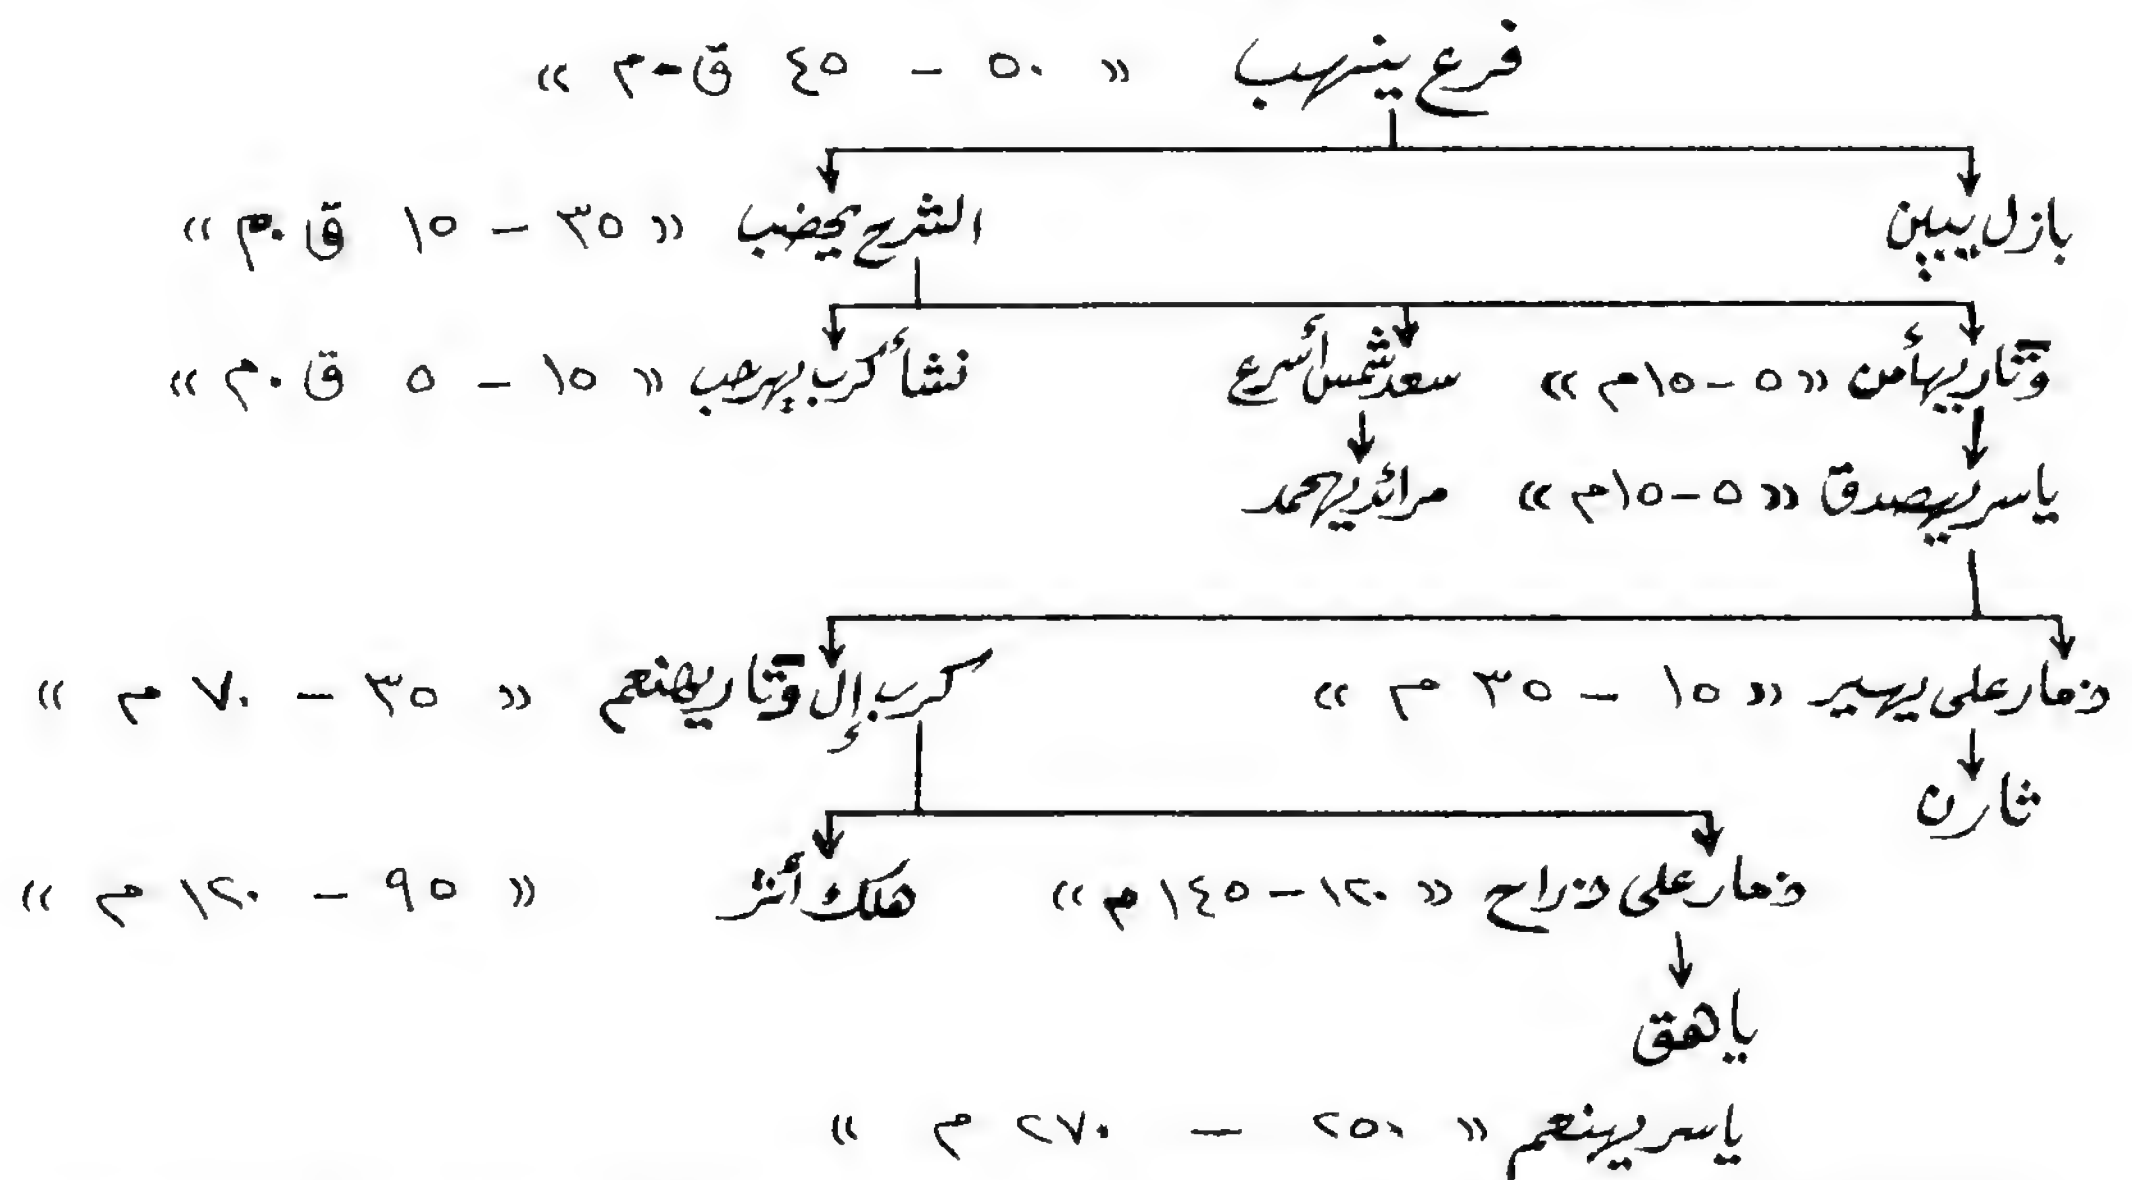 فرع ينهب « ٥٠ - ٤٥ ق.م »
بازل يبين الشرح يحضب « ٣٥ - ١٥ ق.م »
وتار يهأمن « ٥ - ١٥م » سعد شمس أسرع نشأ كرب يهرحب « ١٥ - ٥ ق.م »
ياسر يهصدق « ٥ - ١٥م » مرائد يهحمد
ذمار على يهبر « ١٥ - ٣٥ م » كرب إل وتار يهنعم « ٣٥ - ٧٠ م »
ثارن
ذمار على ذراح « ١٢٠ - ١٤٥ م » هلك أمر « ٩٥ - ١٢٠ م »
ياهق
ياسر يهنعم « ٢٥٠ - ٢٧٠ م »